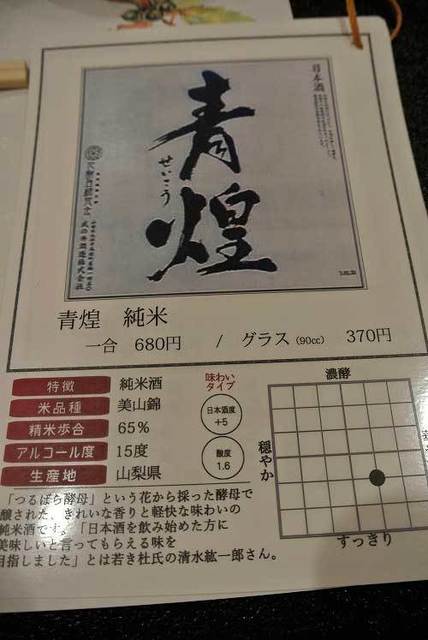 日本酒
青煌
せいこう
武の井酒造株式会社
青煌 純米
一合 680円 / グラス (90cc) 370円
特徴 純米酒
米品種 美山錦
精米歩合 65%
アルコール度 15度
生産地 山梨県
味わい
タイプ
日本酒度
+5
酸度
1.6
濃酵
穏やか
すっきり
「つるばら酵母」という花から採った酵母で
醸された、きれいな香りと軽快な味わいの
純米酒です。「日本酒を飲み始めた方に
美味しいと言ってもらえる味を
目指しました」とは若き杜氏の清水紘一郎さん。